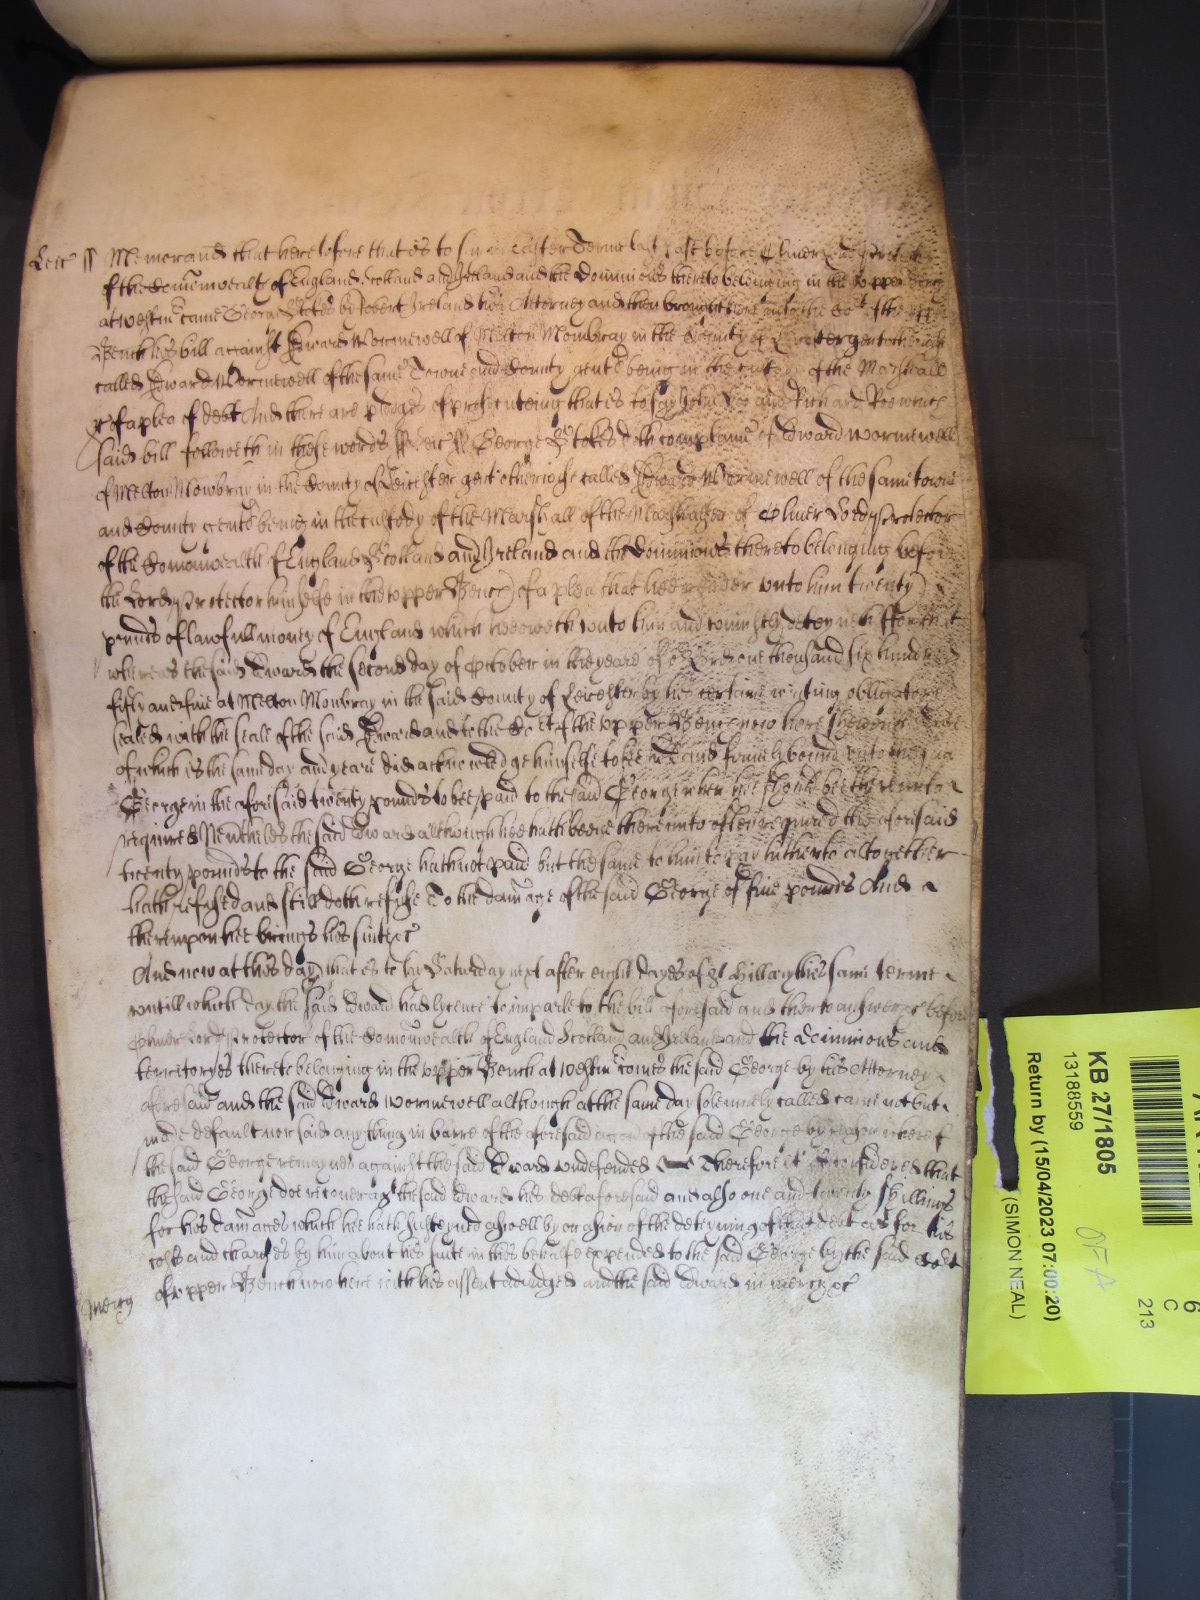 Leicr ss Memorand that heretofore that is to say in Easter Terme last past before Oliver Lord Protector
of the Comonwealth of England Scotland and Ireland and the Dominions thereto belonging in the Upper Bench
at Westmr came George Stokes by Robert Ireland his Attorney and then brought here into the Cort of the upper
Bench his bill against Edward Wormewell of Melton Mowbray in the County of Leicester gent otherwise
called Edward Wormewell of the same Towne and County gent being in the custody of the Marshall
&c of a plea of debt And there are pledges of prosecuteing that is to say John Doe and Richard Roe which
said bill followeth in these words ss Leic ss George Stokes doth complaine of Edward Wormewell
of Melton Mowbray in the County of Leicester gent otherwise called Edward Wormewell of the same towne
and County gent being in the custody of the Marshall of the Marshalsea of Oliver Lord Protector
of the Comonwealth of England Scotland and Ireland and the Dominions thereto belonging before
the Lord Protector himselfe in the upper Bench of a plea that hee render unto him twenty
pounds of lawfull money of England which hee oweth unto him and uniustly deteyneth ffor that
whereas the said Edward the second day of October in the yeare of or Lord one thousand six hundred
fifty and five at Melton Mowbray in the said County of Leicester by his certaine writing obligatory
sealed with the seale of the said Edward and to the Cort of the upper Bench now here shewed the date
of which is the same day and yeare did acknowledge himselfe to bee held and firmely bound unto the said
George in the aforesaid twenty pounds to bee paid to the said George when hee should bee thereunto
required Neverthelesse the said Edward although hee hath beene thereunto often required the aforesaid
twenty pounds to the said George hath not paid but the same to him to pay hitherto altogether
hath refused and still doth refuse To the damage of the said George of five pounds And
thereupon hee brings his suite &c
And now at this day that is to say Saturday next after eight dayes of St Hillary this same terme
untill which day the said Edward had lycence to imparle to the bill aforesaid and then to answere &c before
Oliver Lord Protector of the Comonwealth of England Scotland and Ireland and the Dominions and
territoryes thereto belonging in the upper Bench at Westmr comes the said George by his Attorney
aforesaid and the said Edward Wormewell although at the same day solemnely called came not but
made default nor said any thing in barre of the aforesaid accon of the said George by reason whereof
the said George remaynes against the said Edward undefended Therefore it is considered that
the said George doe recover agt the said Edward his debt aforesaid and also one and twenty shillings
for his damages which hee hath susteyned aswell by occasion of the deteyning of that debt as for his
costs and charges by him about his suite in this behalfe expended to the said George by the said Cort
of upper Bench now here with his assent adiudged and the said Edward in mercy &c
Mercy
KB 27/1805
13188559
Return by (15/04/2023 07:00:20)
(SIMON NEAL)
OFA
6
C
213